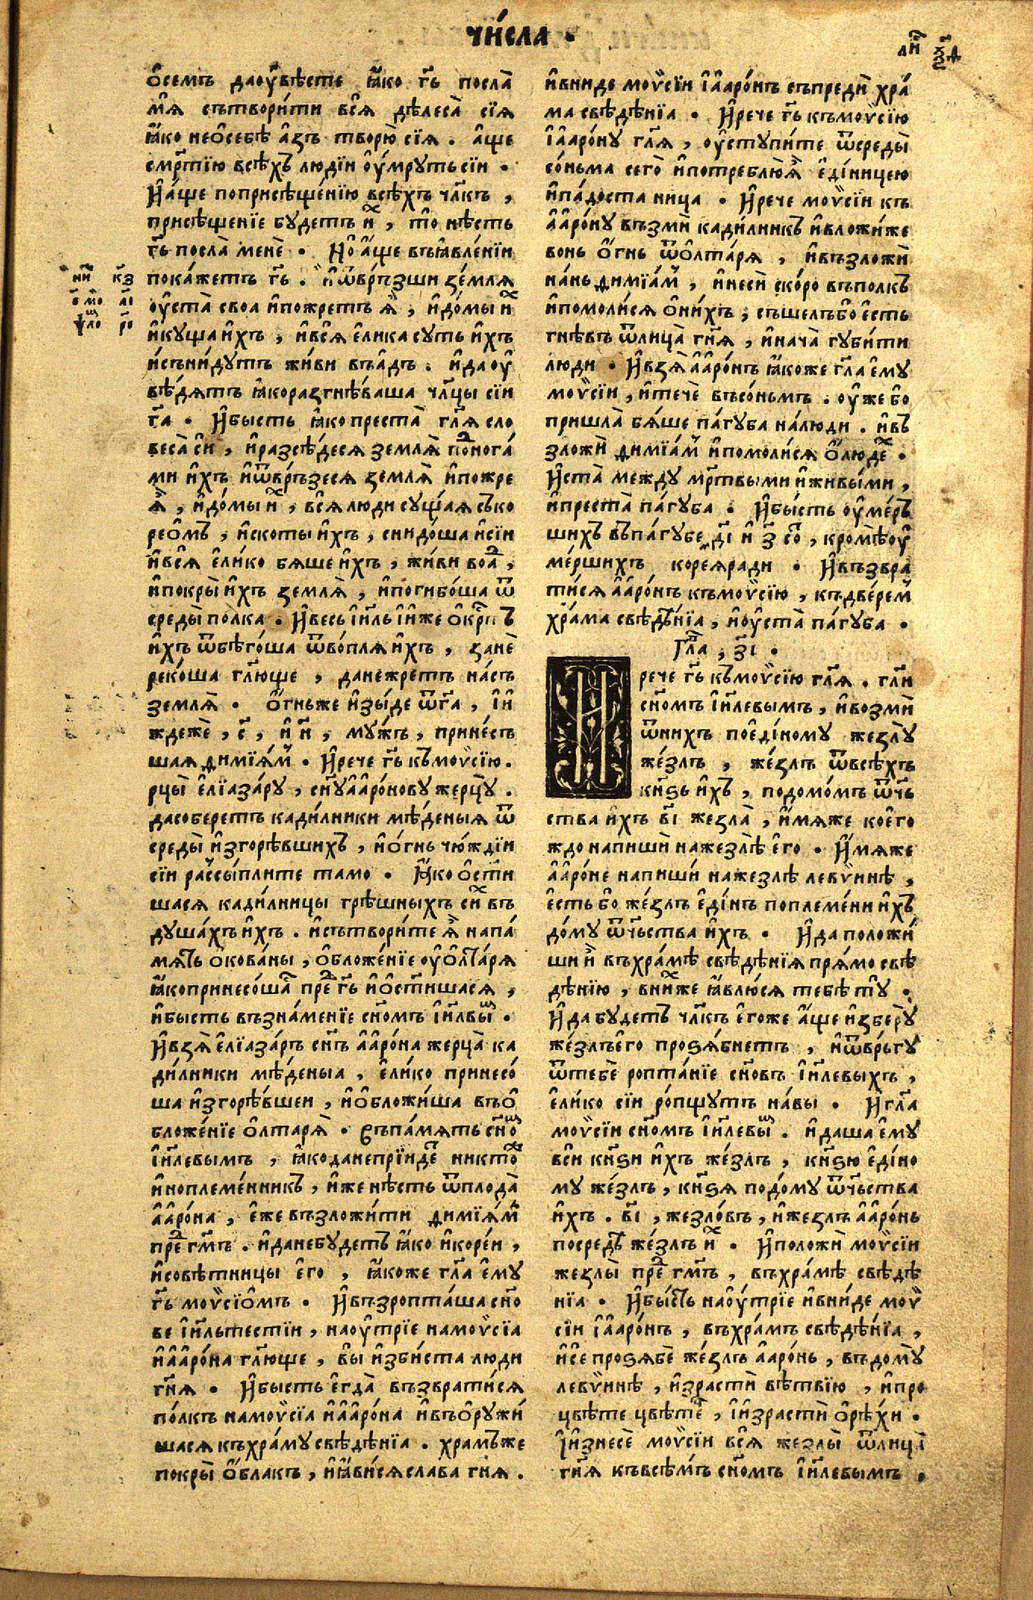 чи́сла ·
ли҃ ѯ҃д
ѻ҆семъ даоу҆вѣсте ꙗ҆́ко гь҃ посла̀
мѧ̀ сътвори́ти всѧ̀ дѣлеса̀ сїѧ
ꙗ҆́ко неѻ҆себѣ̀ а҆́зъ творю̀ сїѧ . а҆ще
смр҃тїю всѣ́хъ люді́и оу҆́мрутъ сїи ·
И҆ а҆́ще поприсѣще́нїю всѣ́хъ чл҃къ ,
присѣще́нїе бу́детъ и҆̀х , то нѣ́сть
гь҃ посла̀ менѐ · Но̀ а҆́ще въꙗ҆вле́нїи
пока́жетъ гь҃ . и҆ ѿвръ́зши земля
оу҆ста̀ своа и҆пожретъ ѧ҆̀ , и҆до́мы и҆̀х
и҆куща и҆́хъ , и҆всѧ̀ е҆ли́ка суть и҆́хъ
и҆съни́дутъ живи въа́дъ . и҆да оу҆
вѣ́дѧтъ ꙗ҆́коразгнѣ́ваша чл҃цы сїи
га҃ · И҆бысть ꙗ҆́ко преста̀ гл҃ѧ сло
веса̀ сїи , и҆разсѣ́десѧ землѧ̀ поⷣнога́
ми и҆́хъ и҆ѿвръ́зесѧ землѧ̀ и҆пожре
ѧ҆̀ , и҆до́мы и҆̀х , всѧ̀ люди су́щаѧ съко
рео́мъ , и҆ско́ты и҆́хъ , снидо́ша и҆сїи
и҆всѧ̀ е҆ли́ко бѧ́ше и҆́хъ , жи́ви воаⷣ ,
и҆покры̀ и҆́хъ землѧ̀ , и҆погибо́ша ѿ
среды̀ по́лка . И҆весь і҆и҃ль и҆́же ѻ҆́кръⷭ҇тъ
и҆́хъ ѿбѣго́ша ѿво́плѧ и҆́хъ , занѐ
реко́ша гл҃юще , данежретъ на́съ
землѧ̀ · ѻ҆́гньже и҆зы́де ѿга҃ , і҆ и҆
ждежѐ , с҃ , и҆ н҃ , му́жъ , прине́съ
шаѧ димїѧ́мъ . И҆рече гь҃ къмоѵ҆сїю .
рцы̀ е҆лїаза́ру , сн҃уа҆аро́нову жерцу̀ .
дасоберетъ кади́лники мѣ́деныѧ ѿ
среды̀ и҆згорѣ́вшихъ , и҆о҆гнь чю́ждїи
сїи разсы́плите та́мо · Ꙗ҆́ко ѻ҆ст҃и
шасѧ кади́лницы грѣ́шныхъ сиⷯ въ
душа́хъ и҆́хъ . и҆сътвори́те ѧ҆̀ напа́
мѧть ѻ҆кова́ны , ѻ҆бложе́нїе оу҆ѻ҆лтарѧ̀
ꙗ҆́копринесо́шаⷭ҇ преⷣ гь҃ и҆ѻ҆ст҃ишасѧ ,
и҆бысть възна́менїе сн҃омъ і҆и҃лвымъ ·
И҆взѧ̀ е҆лїаза́ръ сн҃ъ а҆аро́на жерца̀ ка
ди́лники мѣ́деныа , е҆ли́ко принесо́
ша и҆згорѣ́вшеи , и҆ѻ҆бложи́ша въѻ҆
бложе́нїе ѻ҆лтарѧ̀ · въпа́мѧть сн҃оⷨ
і҆и҃левымъ , ꙗ҆́коданепрїи́деⷮ никто́
и҆ноплеме́нникъ , и҆́же нѣ́сть ѿплода̀
а҆аро́на , е҆́же възложи́ти димїѧ́мъ
преⷣ гм҃ъ . и҆данебу́детъ ꙗ҆́ко и҆коре́и ,
и҆совѣ́тницы е҆го̀ , ꙗ҆́коже гл҃а е҆му̀
гь҃ моѵ҆сїо́мъ · И҆възропта́ша сн҃о
ве і҆и҃льтестїи , наоу҆́трїе намоѵ҆сїа
и҆а҆аро́на гл҃юще , вы̀ и҆зби́ста люди
гн҃ѧ · И҆бысть е҆гда̀ възврати́сѧ
по́лкъ намоѵ҆сїа и҆а҆аро́на и҆въѻ҆ружи́
шасѧ къхра́му свѣдѣ́нїа . хра́мъже
покры̀ ѻ҆́блакъ , и҆ꙗ҆ви́сѧ сла́ва гн҃ѧ .
чи҃ к҃з
и҆вни́де моѵ҆сїи і҆а҆аро́нъ съпредѝ хра́
ма свѣдѣ́нїа · И҆рече гь҃ къмоѵ҆сїю
і҆а҆аро́ну гл҃ѧ , оу҆ступи́те ѿсреды̀
со́ньма сего̀ и҆потреблю̀ ѧ҆̀ е҆ди́ницею
и҆падо́ста ница . И҆рече моѵ҆сїи къ
а҆аро́ну възмѝ кади́лникъ и҆вложи́же
вонь ѻ҆́гнь ѿѻ҆лтарѧ̀ , и҆възложѝ
на́нь димїа́мъ , и҆несѝ ско́ро въполкъ
и҆помоли́сѧ ѻ҆ни́хъ ; съшелъбо е҆сть
гнѣ́въ ѿлица̀ гн҃ѧ , и҆нача̀ губи́ти
люди · И҆взѧ̀ а҆аро́нъ ꙗ҆́коже гл҃а е҆му̀
моѵ҆сїи , и҆течѐ въсо́ньмъ . оу҆́же бо
пришла̀ бѧ́ше па́губа на́люди . и҆въ
зложѝ димїа́мъ и҆помоли́сѧ ѻ҆ лю́деⷯ .
И҆ста̀ между мр҃твыми и҆живы́ми ,
и҆преста̀ па́губа · И҆бысть оу҆ме́рь
шихъ въпа́губе , д҃і и҆ з҃ со҃ , кромѣ́оу҆
ме́ршихъ коре́ѧради · И҆възвра
ти́сѧ а҆аро́нъ къмоѵ҆сїю , къдве́ремъ
хра́ма свѣдѣ́нїа , и҆оу҆ста̀ па́губа ·
Гла҃ , з҃і ·
И рече гь҃ къмоѵ҆сїю гл҃ѧ . гл҃и
сн҃омъ і҆и҃левымъ , и҆возмѝ
ѿни́хъ пое҆ди́ному же́злу
же́злъ , же́злъ ѿвсѣ́хъ
кн҃ѕь и҆́хъ , подомо́мъ ѿч҃ь
ства и҆́хъ в҃і жезла̀ , и҆мѧже кое́го
ждо напишѝ нажезлѣ̀ е҆го̀ · И҆мѧже
а҆аро́не напишѝ нажезлѣ̀ леѵи́инѣ ,
е҆сть бо же́злъ е҆ди́нъ поплеме́ни и҆́хъ
до́му ѿч҃ьства и҆́хъ · И҆да положи́
ши и҆̀ въхра́мѣ свѣдѣ́нїѧ прѧ́мо свѣ
дѣ́нїю , вни́хже ꙗ҆влю́сѧ тебѣ̀ ту̀ .
И҆да бу́детъ чл҃къ е҆го́же а҆́ще и҆зберу̀
же́злъе҆го̀ проѕѧ́бнетъ , и҆ѿвръ́гу
ѿтебѐ ропта́нїе сн҃овъ і҆и҃левыхъ ,
е҆ли́ко сїи ро́пщутъ на́вы · И҆ гл҃а
моѵ҆сїи сн҃омъ і҆и҃левымъ . и҆даша е҆му̀
вси кн҃ѕи и҆́хъ же́злъ , кн҃ѕю е҆ди́но
му же́злъ , кн҃ѕѧ подо́му ѿч҃ьства
и҆́хъ . в҃і , жезло́въ , и҆же́злъ а҆аро́нь
посредѣ̀ же́злъ и҆̀х . И҆положѝ моѵ҆сїи
жезлы̀ преⷣ гм҃ъ , въхра́мѣ свѣдѣ́
нїа · И҆бы́сть наоу҆́трїе и҆вни́де моѵ҆
сїи і҆а҆аро́нъ , въхра́мъ свѣдѣ́нїа ,
и҆се проѕѧбѐ же́злъ а҆аро́нь , въдому̀
леѵи́инѣ , и҆зрастѝ вѣ́твїю , и҆про
цвѣ́те цвѣ́темъ , і҆и҆зрастѝ ѻ҆рѣ́хи .
І҆и҆знесѐ моѵ҆сїи всѧ̀ жезлы̀ ѿлица̀
гн҃ѧ къвсѣ́мъ сн҃омъ і҆и҃левымъ .